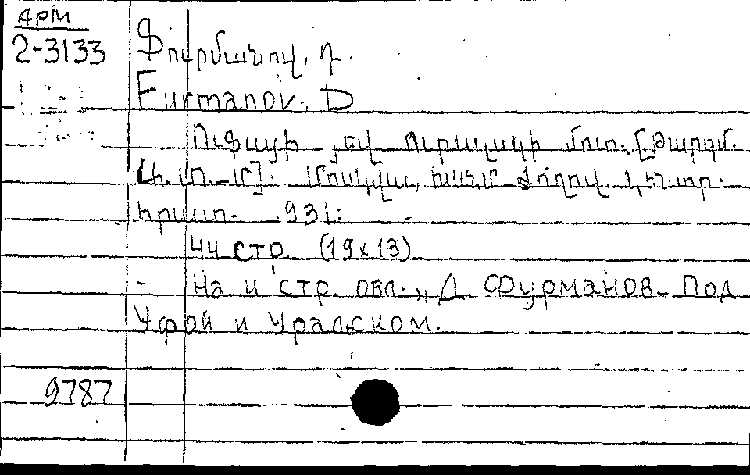 АРМ
2-3133
Ֆուրմանով, Դ.
Furmanov, D
Ուֆայի յեվ Ուրալսկի մոտ. [Թարգմ.
Մոսկվա, ԽՍՀՄ Ժողով. Կենտր.
հրատ. 931.
44 стр. (19x13)
На и стр. обл. „Д. Фурманов. Под
Уфой и Уральском.
9787